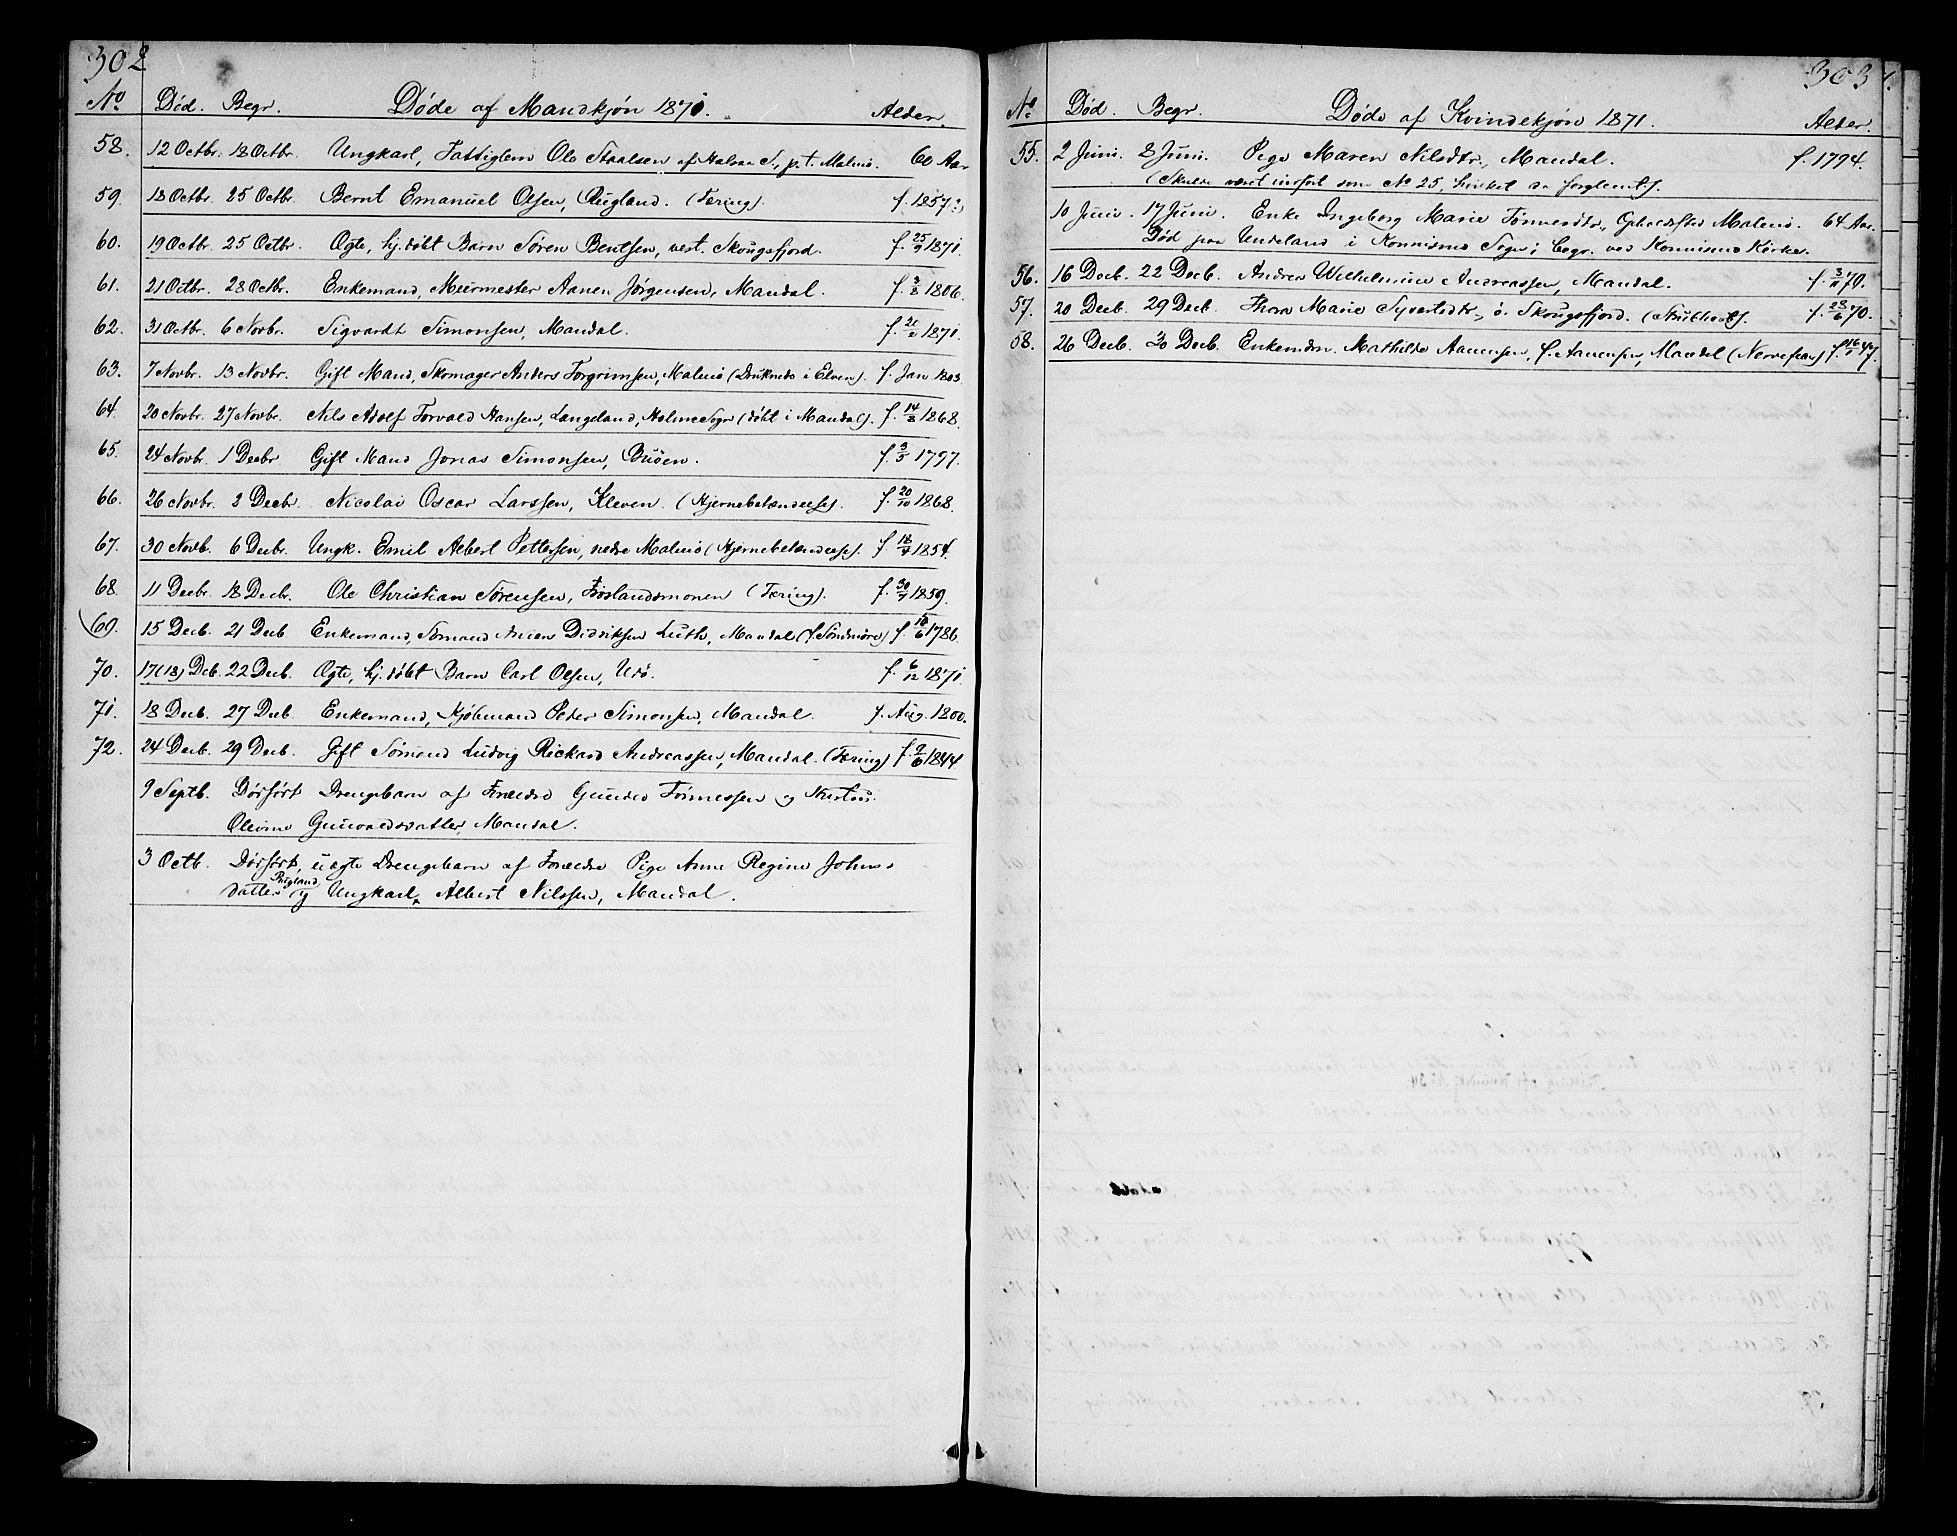 302
No Død. Begr. Døde af Mandkjøn 1871. Alder.
58. 12 Octbr. 18 Octbr. Ungkarl, Fattiglem Ole Staalsen af Halsaa S., p. t. Malmö. 60 Aar
59. 18 Octbr. 25 Octbr. Bernt Emanuel Olsen, Rugland. (Tæring). f. 1857(?)
60. 19 Octbr. 25 Octbr. Ægte, hj. döbt Barn Sören Bentsen, vest. Skougsfjord. f. 25/9 1871.
61. 21 Octbr. 28 Octbr. Enkemand, Muurmester Aanen Jörgensen, Mandal. f. 3/8 1806.
62. 31 Octbr. 6 Novbr. Sigvardt Simonsen, Mandal. f. 21/2 1871.
63. 7 Novbr. 13 Novbr. Gift Mand, Skomager Anders Torgrimsen, Malmö (Druknede i Elven). f. Jan 1803.
64. 20 Novbr. 27 Novbr. Nils Adolf Torvald Hansen, Langeland, Holme Sogn (döbt i Mandal). f. 14/8 1868.
65. 24 Novbr. 1 Decbr Gift Mand Jonas Simonsen, Buöen. f. 3/5 1797.
66. 26 Novbr. 2 Decbr. Nicolai Oscar Larssen, Kleven. (Hjernebetændelse). f. 20/10 1868.
67. 30 Novb. 6 Decbr. Ungk. Emil Albert Pettersen, nedre Malmö (Hjernebetændelse). f. 18/9 1854.
68. 11 Decbr. 18 Decbr. Ole Christian Sörensen, Fröslandsmonen (Tæring). f. 30/7 1859.
69. 15 Decb. 21 Decb Enkemand, Sömand Didriksen Luth, Mandal (f. Söndmöre) f. 18/6 1786.
70. 17(18) Dcb. 22 Decb. Ægte, hj. döbt Barn Carl Olsen, Udö. f. 6/12 1871.
71. 18 Decb. 27 Decb. Enkemand, Kjöbmand Peder Simonsen, Mandal. f. Aug. 1800.
72. 24 Decb. 29 Decb. Gift Sömand Ludvig Rickard Andreassen, Mandal. (Tæring) f. 9/6 1844
9 Septb. Dödfödt Drengebarn af Forældre Gunder Tönnessen og
Olevine Gunvaldsdatter, Mandal.
3 Octb. Dödfödt, uægte Drengebarn af Forældre Pige Anne Regine Johns-
datter Rugland og Ungkarl Albert Nilssen, Mandal.
303
No Død. Begr. Døde af Kvindekjøn 1871. Alder.
55. 2 Juni. 8 Juni. Pige Maren Nilsdtr., Mandal. f. 1794.
(Skulde været indført som No 25, hvilket er forglemt).
10 Juni. 17 Juni. Enke Ingeborg Marie Tönnesdtr., Malmö. 64 Aar.
Död paa Undeland i Konnismo Sogn; begr. ved Konnismo Kirke.
56. 16 Decb. 22 Decb. Andrea Wilhelmine Andreassen, Mandal. f. 3/11 70.
57. 20 Decb. 29 Decb. Thora Marie Syvertsdtr., ö. Skougsfjord. (Strubhoste). f. 28/6 70.
58. 26 Decb. 30 Decb. Enkemdm. Mathilde Aanensen, f. Aanensen, Mandal (Nervefeber) f. 16/1 47.